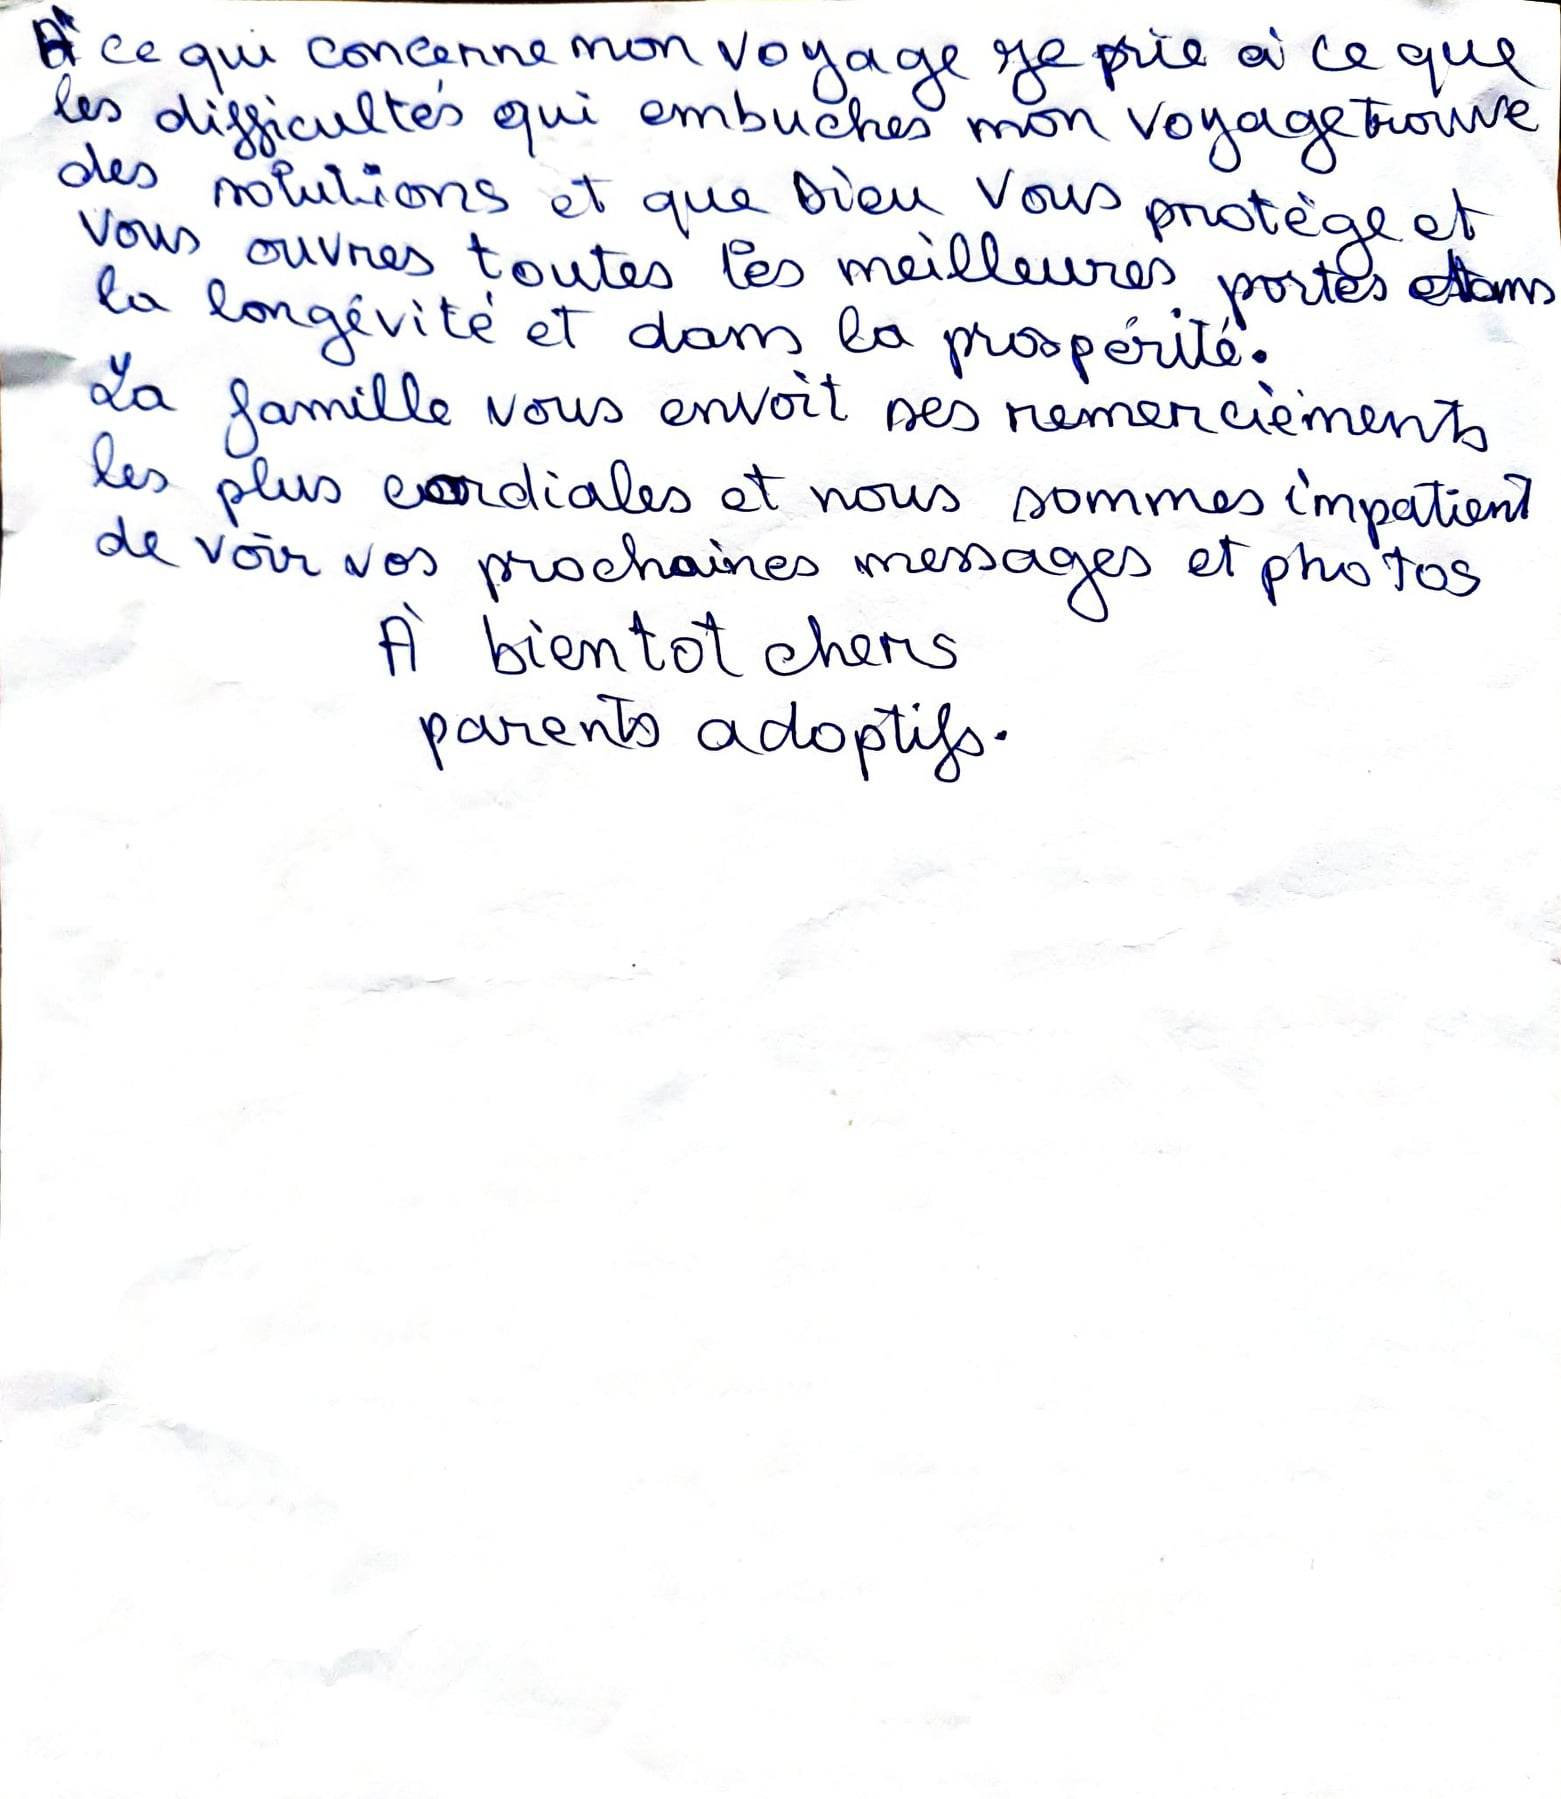 À ce qui concerne mon voyage je prie à ce que
les difficultés qui embuches mon voyage trouve
des solutions et que Dieu vous protège et
vous ouvres toutes les meilleures portes dans
la longévité et dans la prospérité.
La famille vous envoit ses remerciements
les plus cordiales et nous sommes impatient
de voir vos prochaines messages et photos
À bientot chers
parents adoptifs.